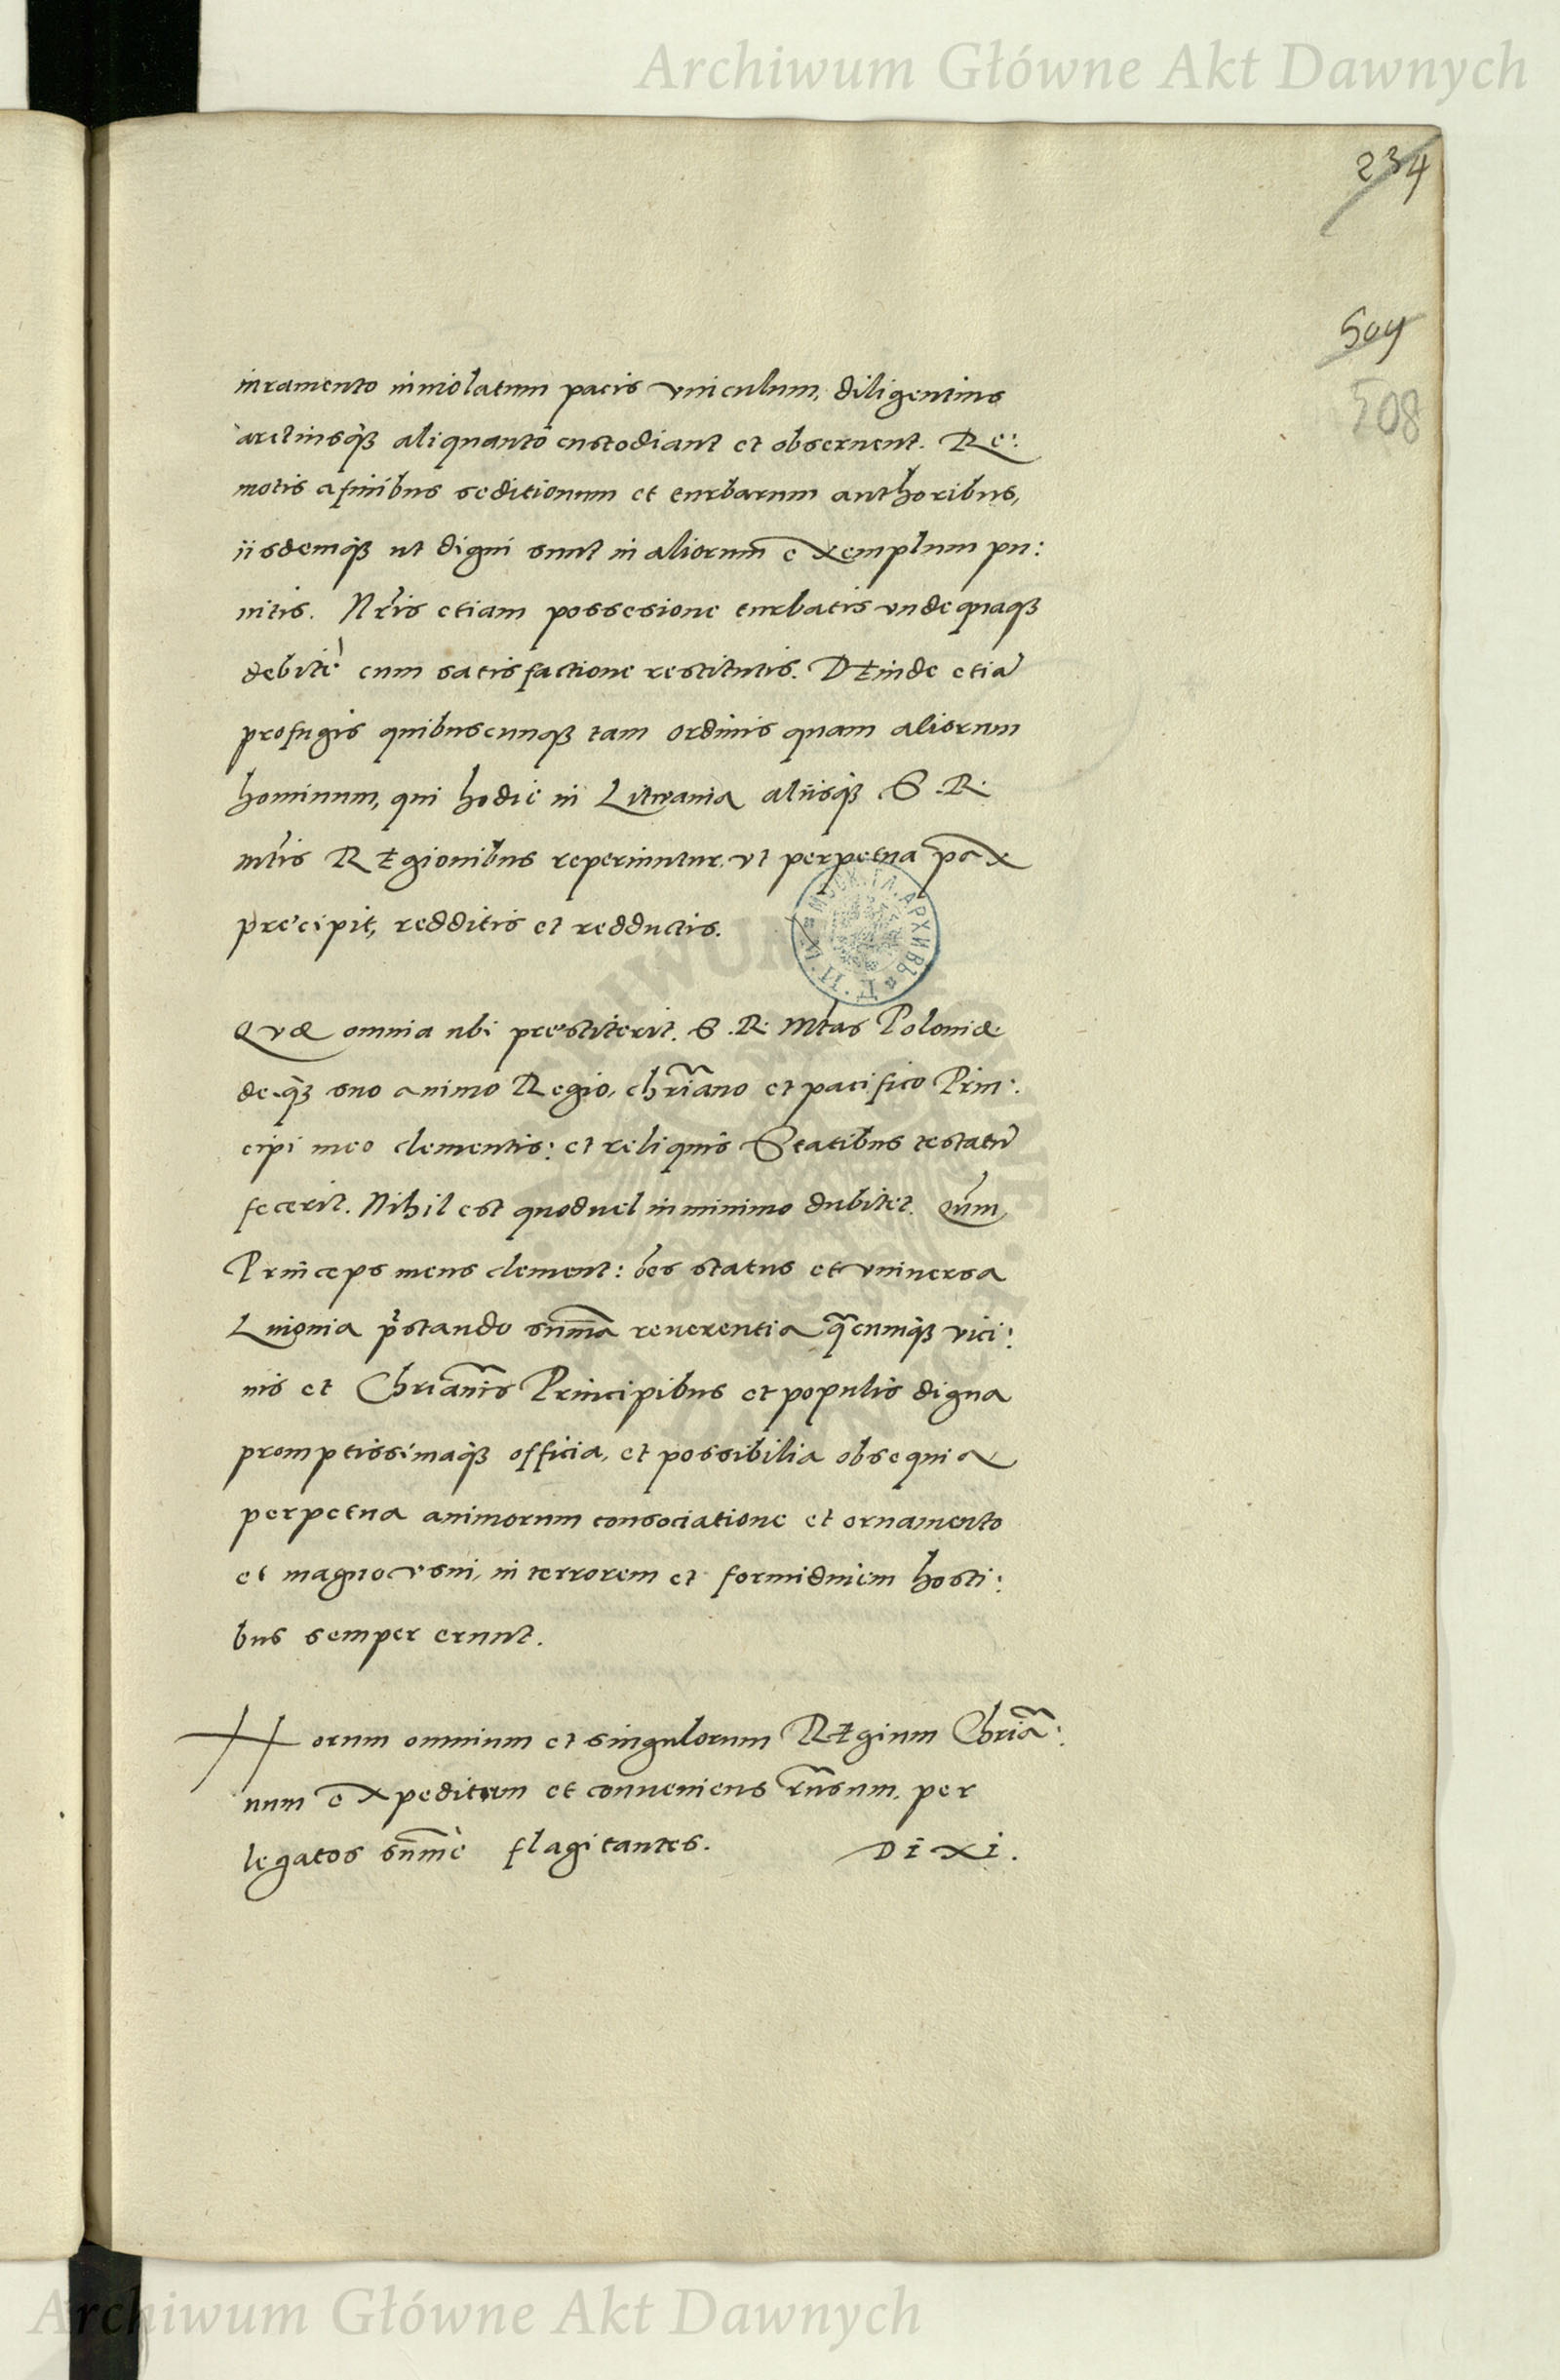 Archiwum Główne Akt Dawnych
234
509
508
iuramento inuiolatum pacis vinculum, diligentius
arctiusq₃ aliquantò custodiant et obseruent. Re:
motis a finibus seditionum et turbarum anthoribus,
iisdemq₃ ut digni sunt in aliorum exemplum pu:
nitis. Nr̃is etiam possesione turbatis vndequaq₃
debitè cum satisfactione restitutis. DEinde etiã
profugis quibuscunq₃ tam ordinis quam aliorum
hominum, qui hodiè in Lituania aliisq₃ S. R.
mtis REgionibus reperiuntur. vt perpetua pax
precipit, redditis et redductis.
МОСК. ГЛ. АРХИВЪ
Quæ omnia ubi prestiterit. S. R. Mtas Poloniæ
deq₃ suo animo Regio, chr̃iano et pacifico Prin:
cipi meo clementis: et reliquis Statibus testatũ
fecerit. Nihil est quod uel in minimo dubitet. Quin
Princeps meus clement: oẽs status et vniuersa
Liuonia p̃stando sum̃a reuerentia q̃cumq₃ vici:
nis et Chr̃ianis Principibus et populis digna
promptissimaq₃ officia, et possibilia obsequia
perpetua animorum consociatione et ornamento
et magno vsui, in terrorem et formidinem hosti:
bus semper erunt.
Horum omnium et singulorum REgium Chr̃ia:
num expeditum et conueniens rñsum, per
legatos sum̃è flagitantes. DIXI.
Archiwum Główne Akt Dawnych